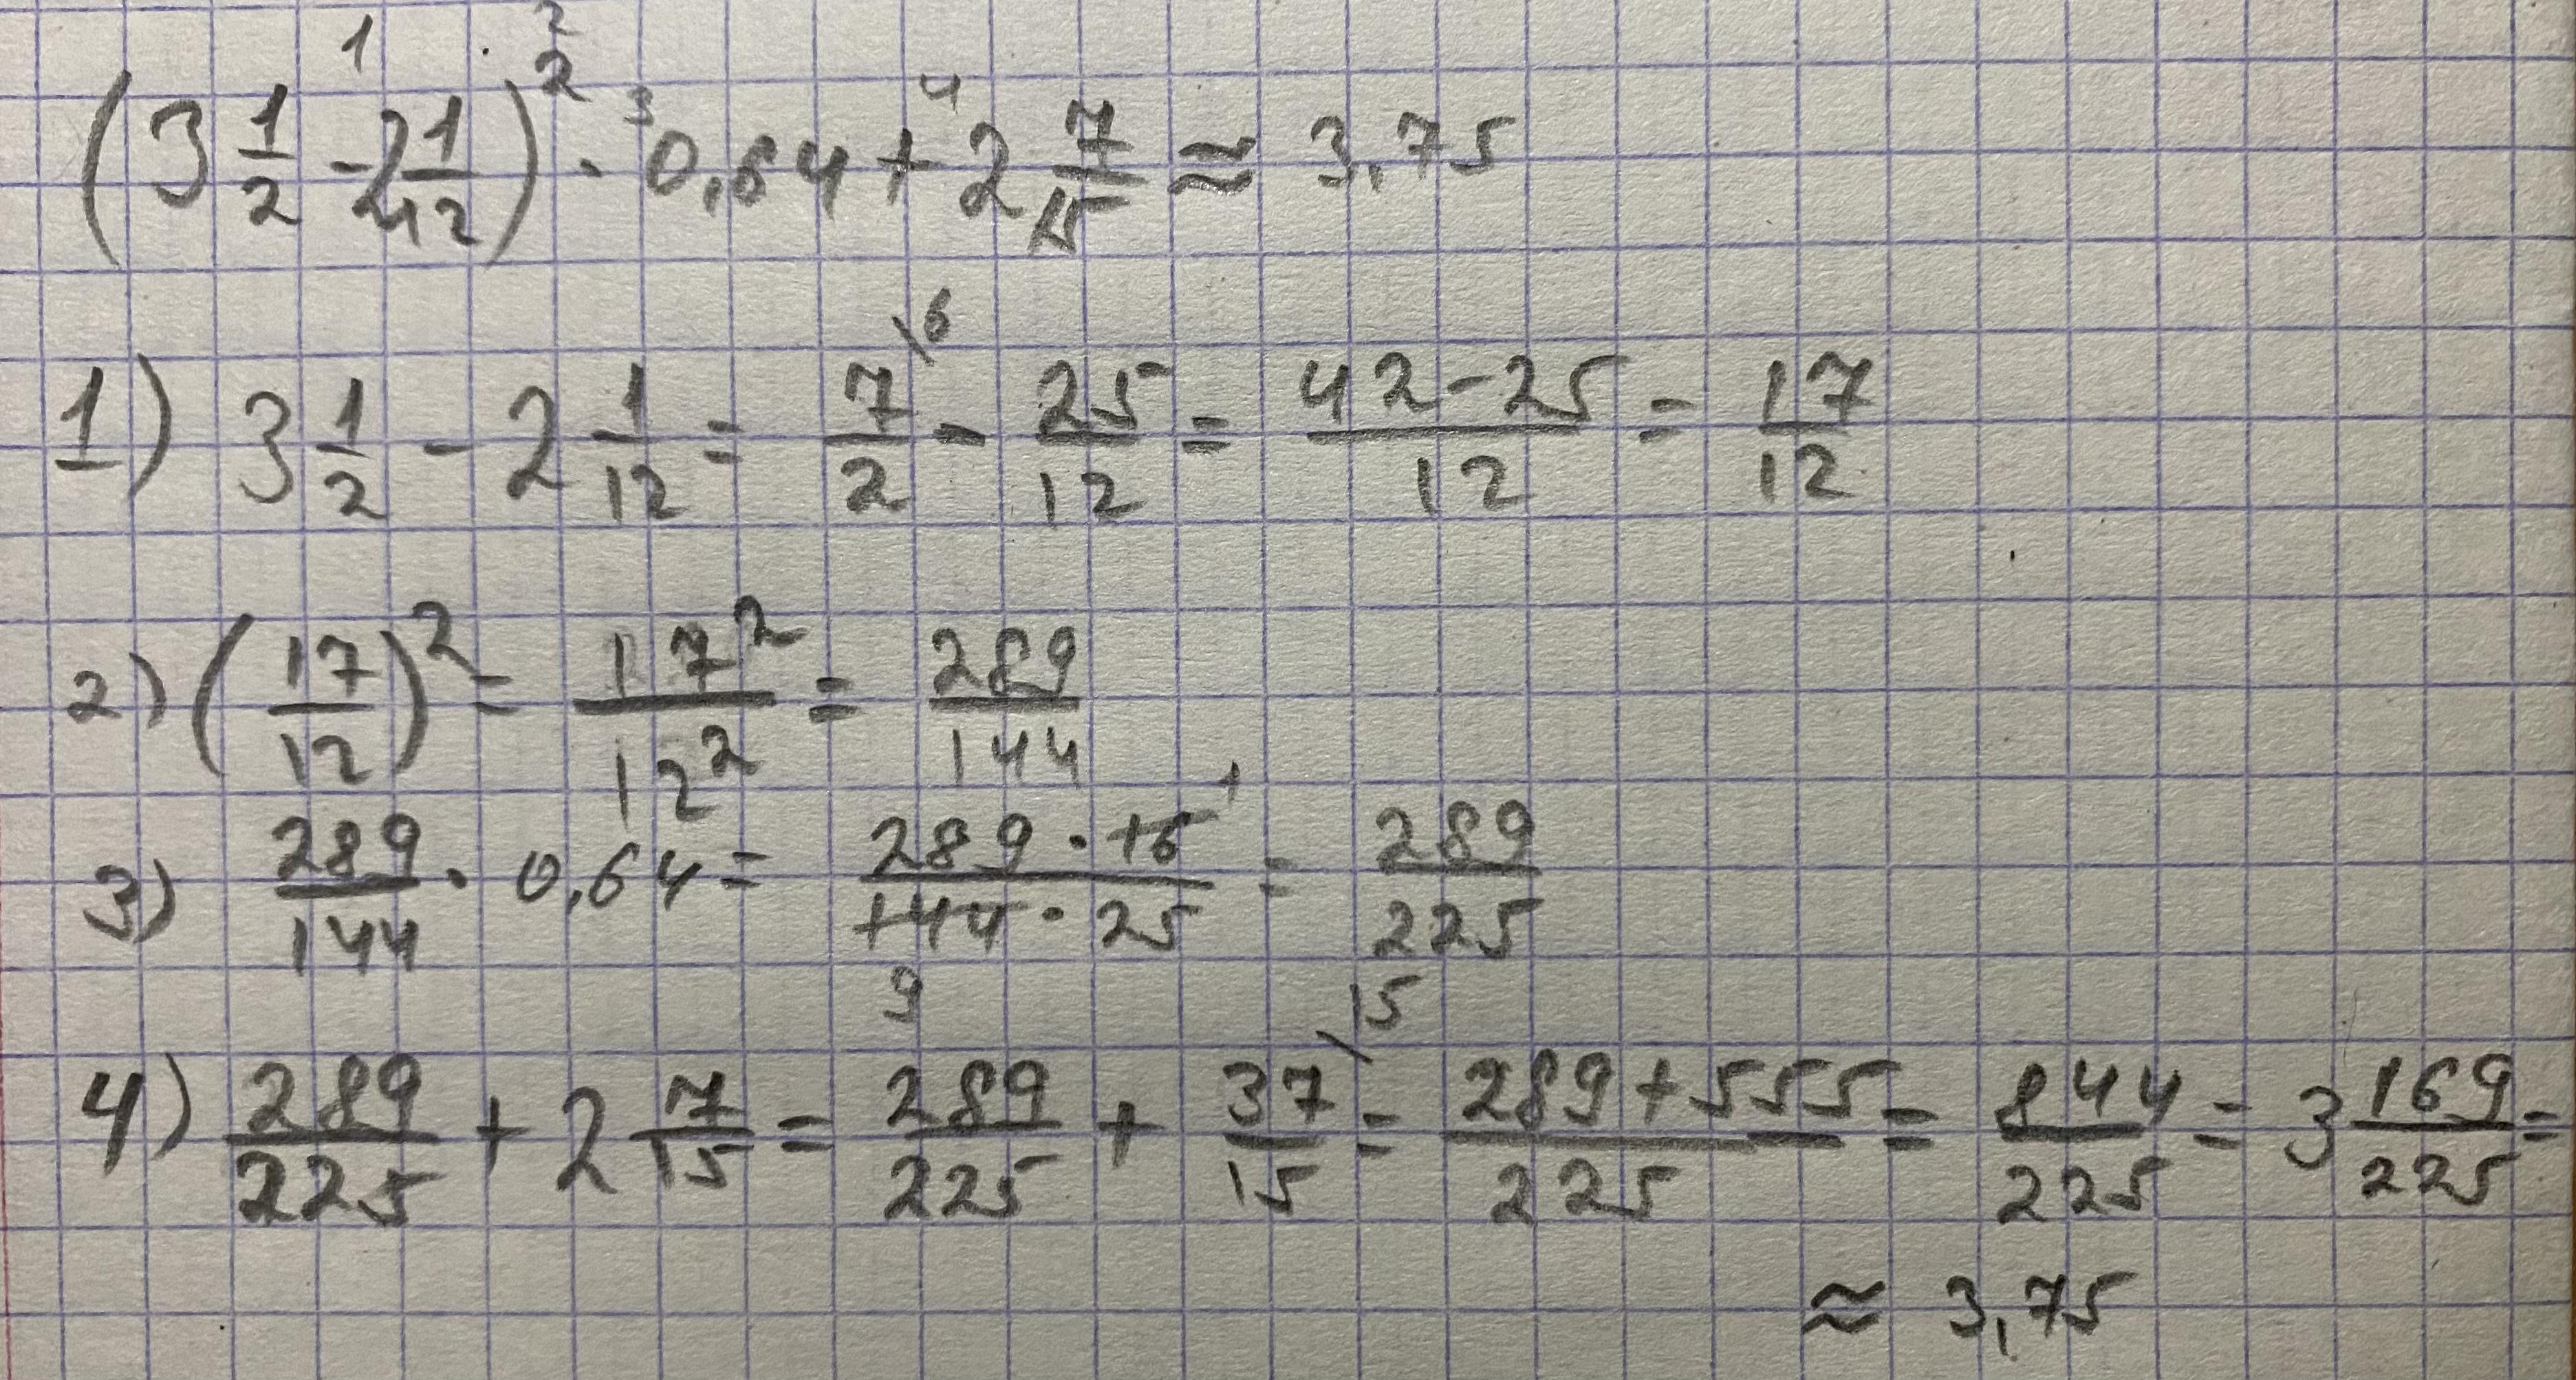 (3 1/2 - 2 1/12)² · 0,64 + 2 7/15 ≈ 3,75
1) 3 1/2 - 2 1/12 = 7/2 \6 - 25/12 = 42-25/12 = 17/12
2) (17/12)² = 17²/12² = 289/144
3) 289/144 · 0,64 = 289 · 16 1/144 9 · 25 = 289/225
4) 289/225 + 2 7/15 = 289/225 + 37/15 \15 = 289+555/225 = 844/225 = 3 169/225 =
≈ 3,75